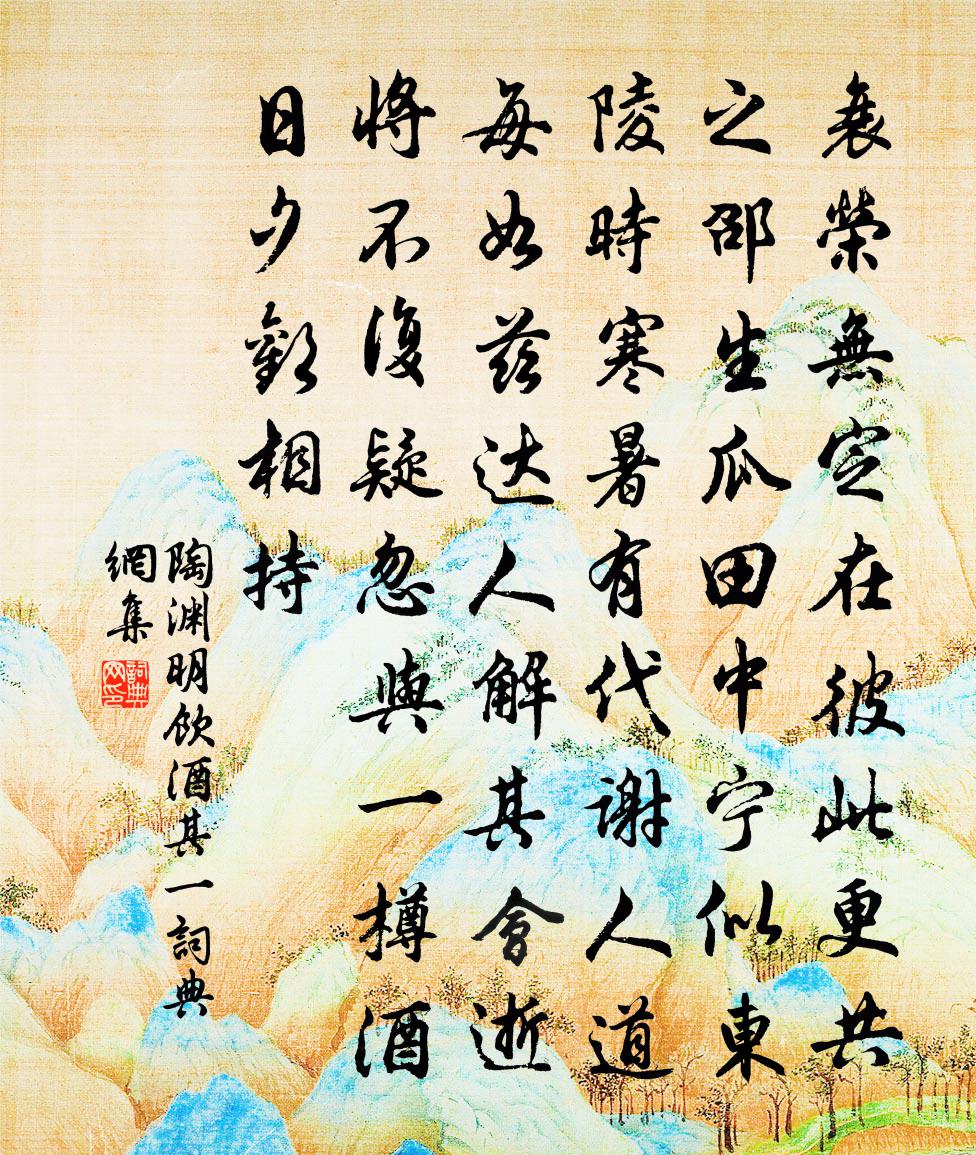 衰榮無定在彼此更共
之邵生瓜田中宁似東
陵時寒暑有代謝人道
每如茲达人解其會逝
將不復疑忽與一樽酒
日夕歡相持
陶渊明飲酒其一詞典
網集
詞典
网印